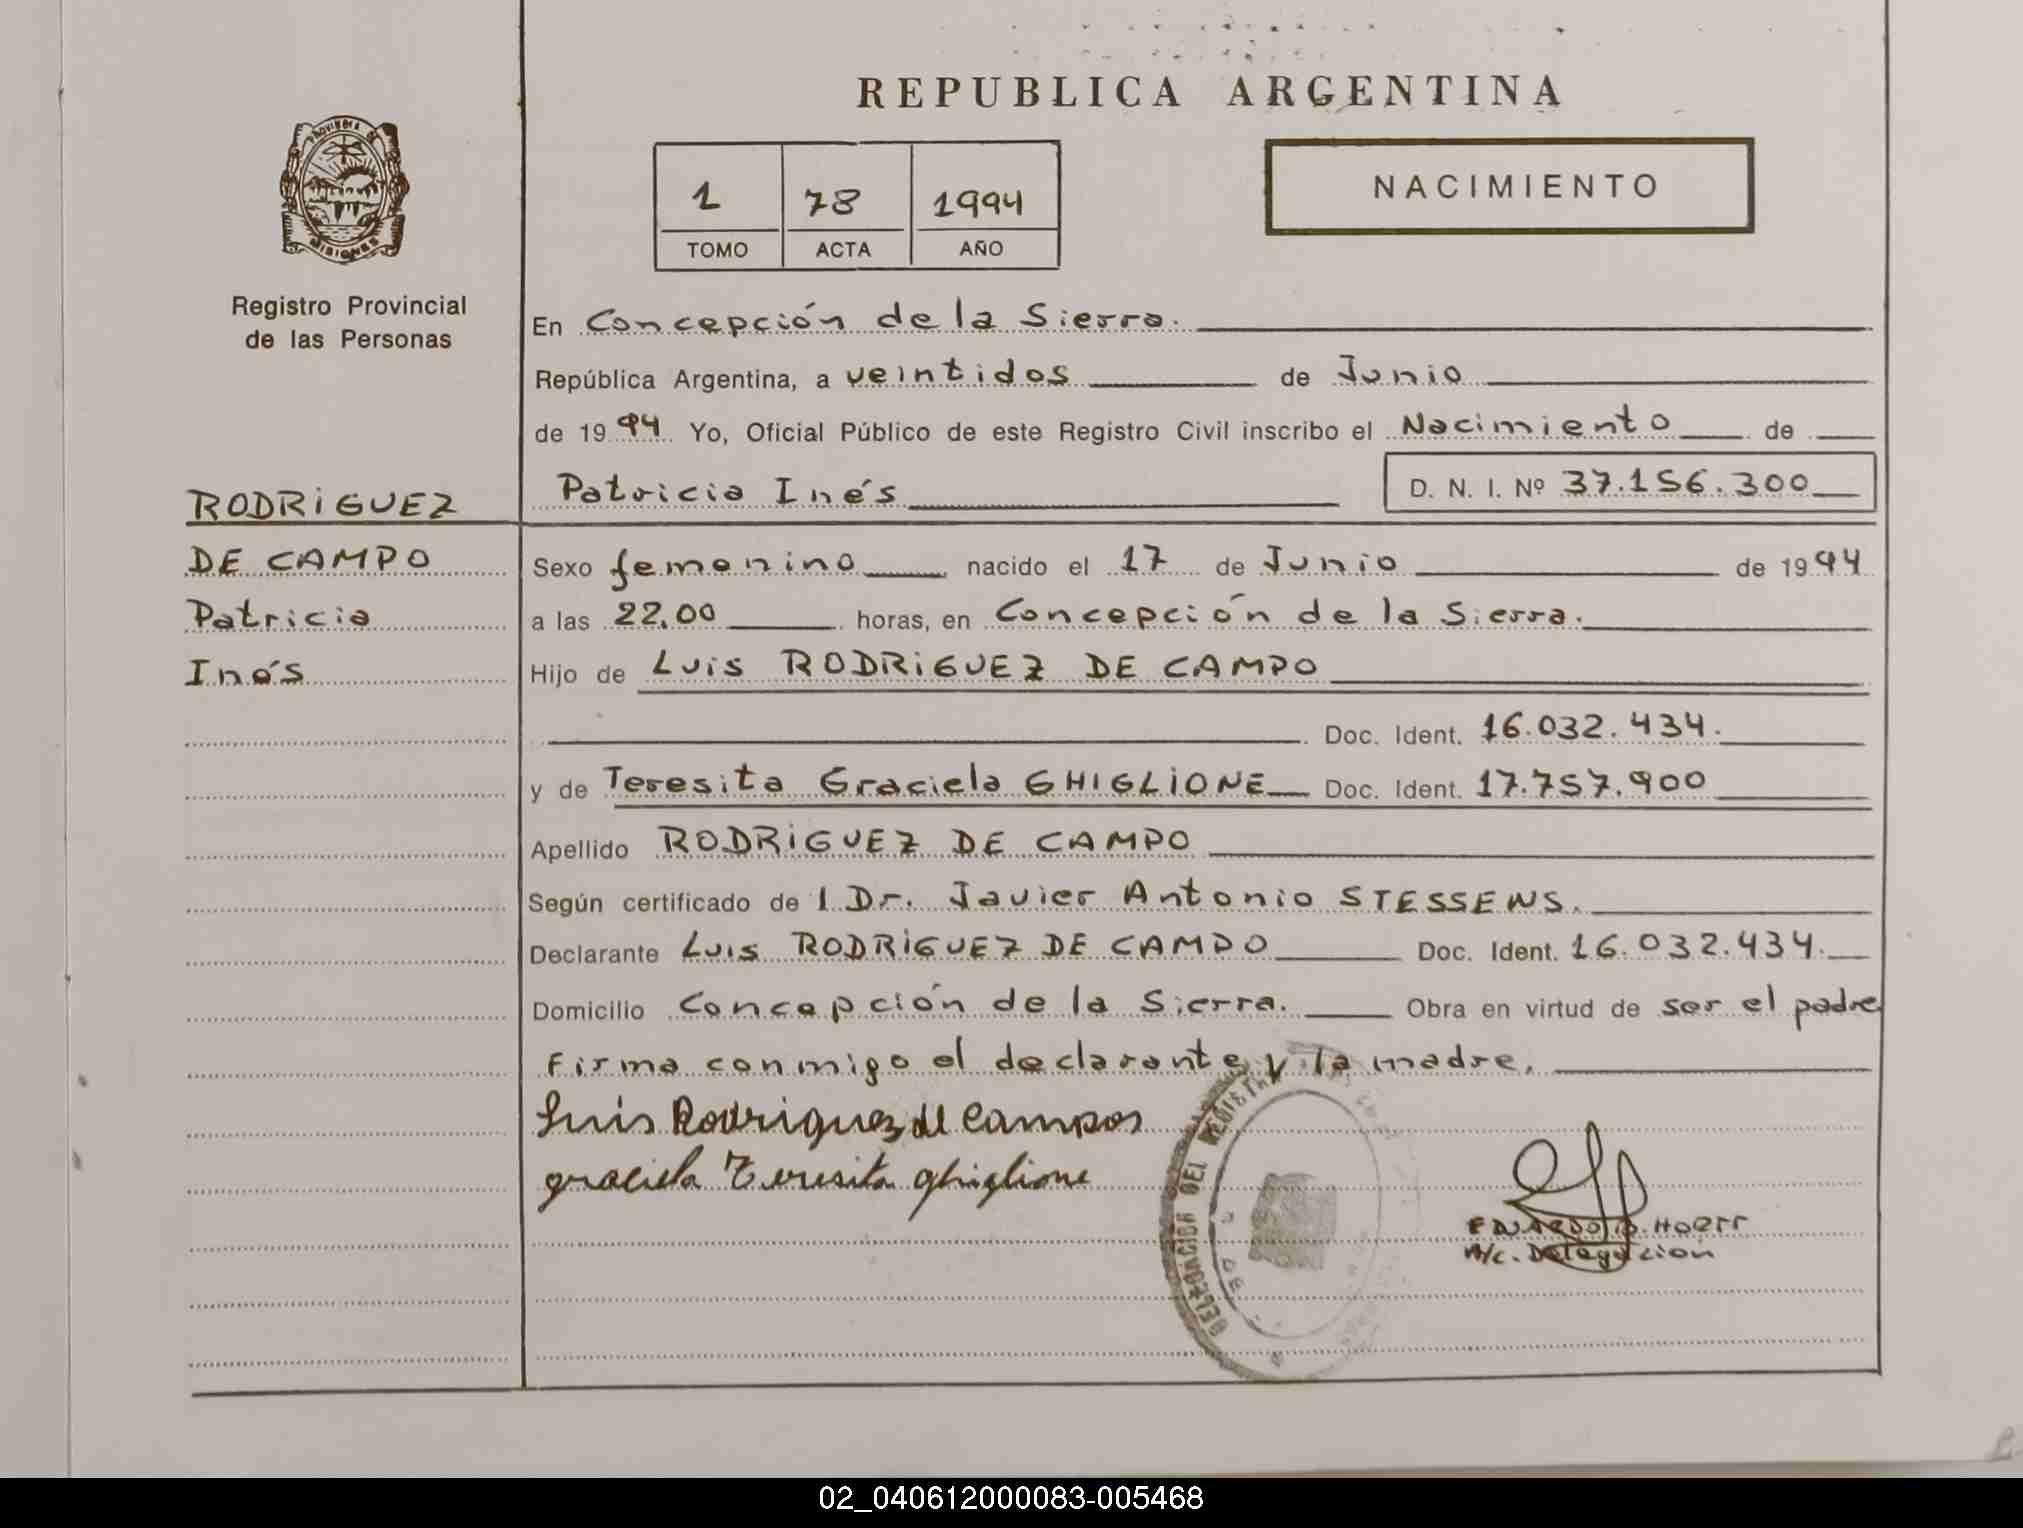 REPUBLICA ARGENTINA
PROVINCIA DE
MISIONES
Registro Provincial
de las Personas
1 78 1994
TOMO ACTA AÑO
NACIMIENTO
En Concepción de la Sierra.
República Argentina, a veintidos de Junio
de 1994 Yo, Oficial Público de este Registro Civil inscribo el Nacimiento de
Patricia Inés D. N. I. Nº 37.156.300
RODRIGUEZ
DE CAMPO
Patricia
Inés
Sexo femenino nacido el 17 de Junio de 1994
a las 22,00 horas, en Concepción de la Sierra.
Hijo de Luis RODRIGUEZ DE CAMPO
Doc. Ident. 16.032.434.
y de Teresita Graciela GHIGLIONE Doc. Ident. 17.757.900
Apellido RODRIGUEZ DE CAMPO
Según certificado de l Dr. Javier Antonio STESSENS.
Declarante Luis RODRIGUEZ DE CAMPO Doc. Ident. 16.032.434.
Domicilio Concepción de la Sierra. Obra en virtud de ser el padre
Firma conmigo el declarante y la madre.
Luis Rodriguez de Campos
graciela Teresita ghiglione
DELEGACION DEL REGISTRO
A/c. Delegación
02_040612000083-005468